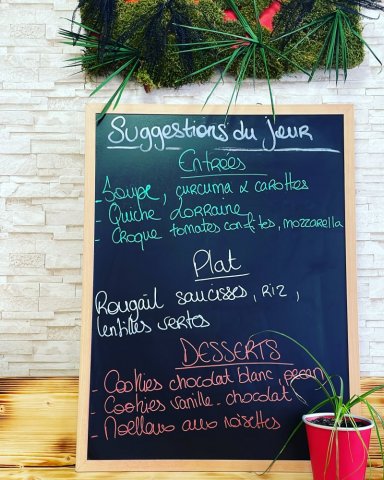 Suggestions du jour
Entrées
- Soupe, curcuma & carottes
- Quiche Lorraine
- Croque tomates confites, mozzarella
Plat
Rougail saucisses, riz,
lentilles vertes
DESSERTS
- Cookies chocolat blanc,
- Cookies vanille - chocolat
- Moelleux aux noisettes